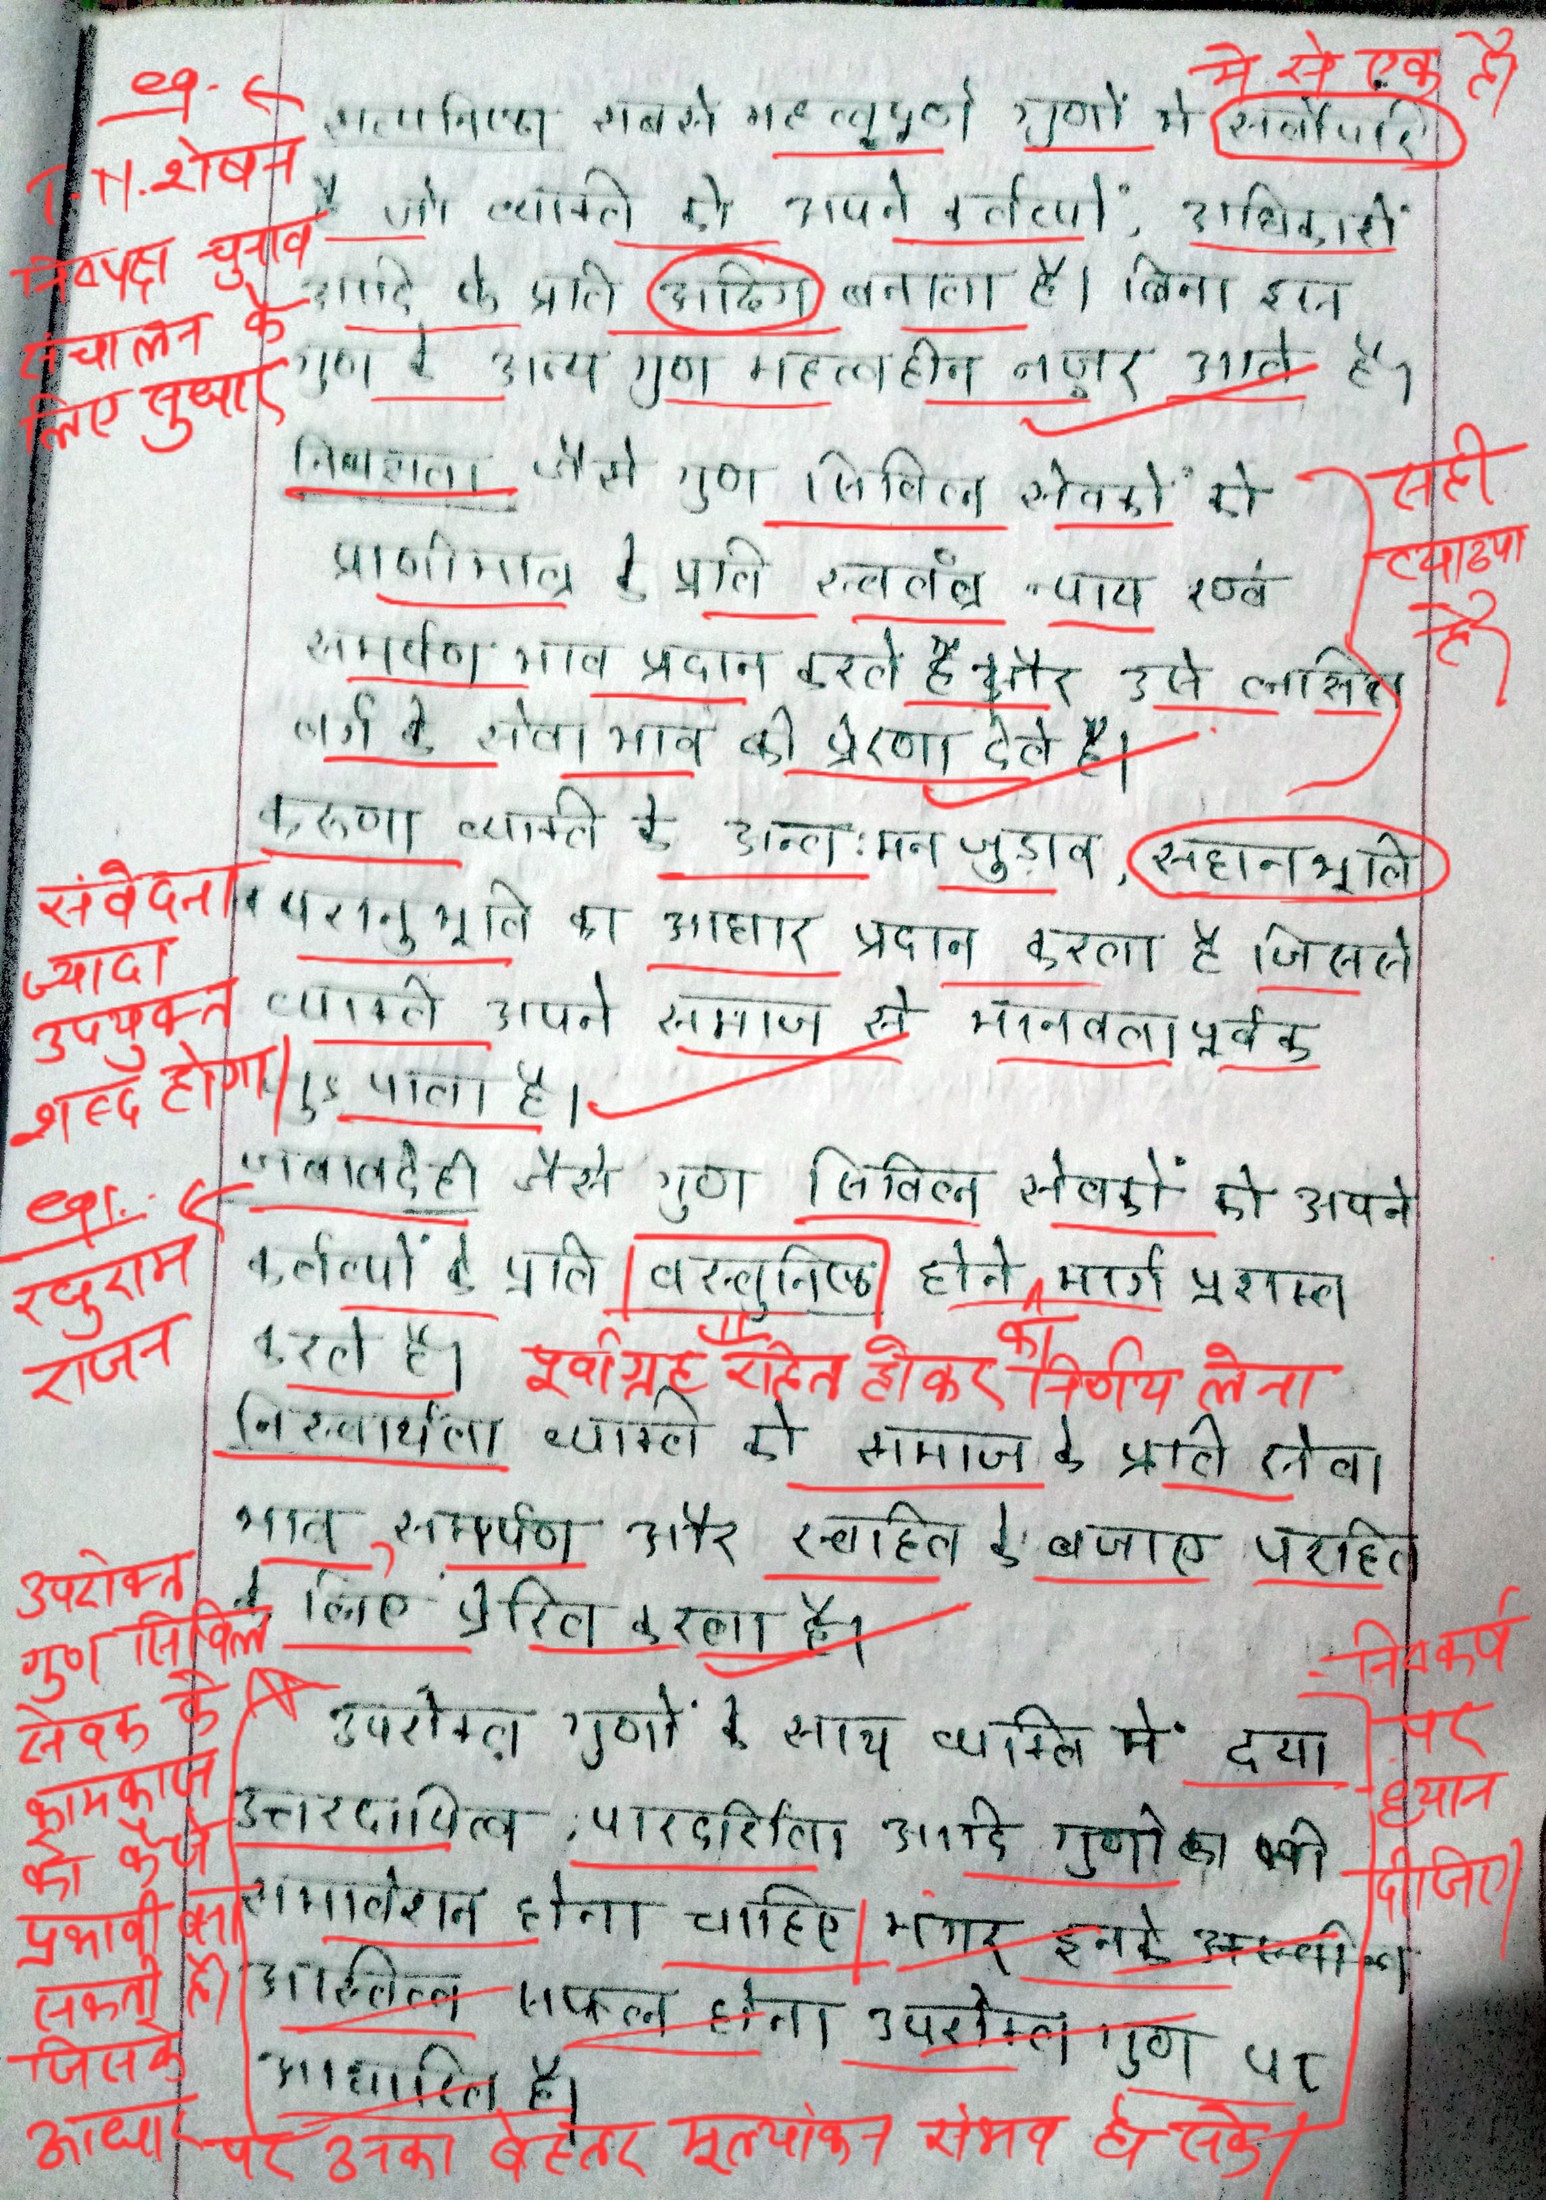 में से एक है।
eg. ←
सत्यनिष्ठा सबसे महत्वपूर्ण गुणों में सर्वोपरि
T.N. शेषन
है जो व्यक्ति को अपने कर्तव्यों, अधिकारों
निष्पक्ष चुनाव
आदि के प्रति अडिग बनाता है। बिना इस
संचालन के
गुण के अन्य गुण महत्वहीन नज़र आते है।
लिए सुधार
निष्पक्षता जैसे गुण सिविल सेवकों को
सही
प्राणीमात्र के प्रति स्वतंत्र न्याय एवं
व्याख्या
है
समर्पण भाव प्रदान करते हैं और उसे
वर्ग के सेवा भाव की प्रेरणा देते है।
करुणा व्यक्ति के अन्तःमन जुड़ाव, सहानभूति
संवेदना
व परानुभूति का आधार प्रदान करता है जिससे
ज्यादा
उपयुक्त
व्यक्ति अपने समाज से मानवतापूर्वक
शब्द होगा।
जुड़ पाता है।
जवाबदेही जैसे गुण सिविल सेवकों को अपने
eg. ←
कर्तव्यों के प्रति वस्तुनिष्ठ होने मार्ग प्रशस्त
का
रघुराम
राजन
करते है।
पूर्वाग्रह रहित होकर निर्णय लेना
निस्वार्थता व्यक्ति को समाज के प्रति सेवा
भाव, समर्पण और स्वहित के बजाए परहित
के लिए प्रेरित करता है।
उपरोक्त
गुण सिविल
सेवक के
कामकाज
को कैसे
प्रभावी बना
सकती है।
जिसके
आधार पर उनका बेहतर मूल्यांकन संभव हो सके।
उपरोक्त गुणों के साथ व्यक्ति में दया
उत्तरदायित्व, पारदर्शिता आदि गुणो का भी
समावेशन होना चाहिए। मगर इनके
अस्तित्व सफल होना उपरोक्त गुण पर
आधारित है।
निष्कर्ष
पर
ध्यान
दीजिए।